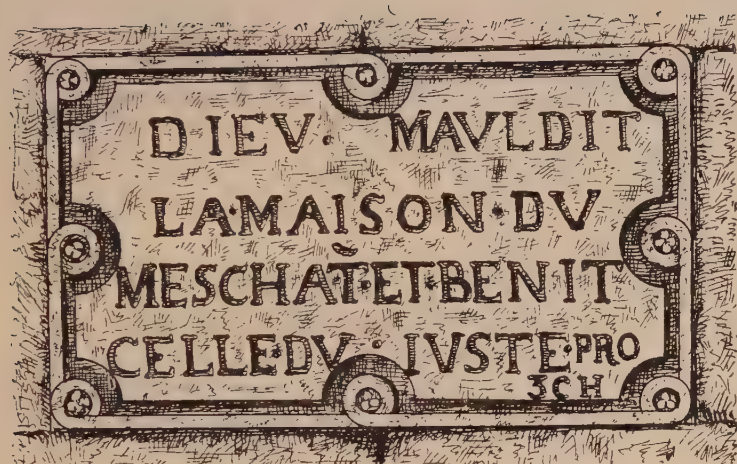 DIEV · MAVLDIT
LA·MAISON·DV
MESCHAT̆·ET·BENIT
CELLE·DV · IVSTE·PRO
3CH